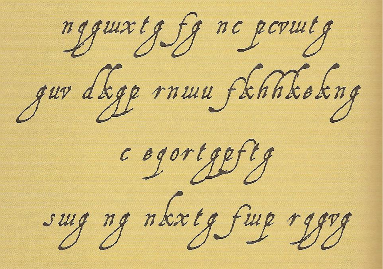 nqgwxtg fg nc pcvwtg
guv dkgp rnwu fkhhkekng
c eqortgpftg
swg ng nkxtg fwp rqgvg